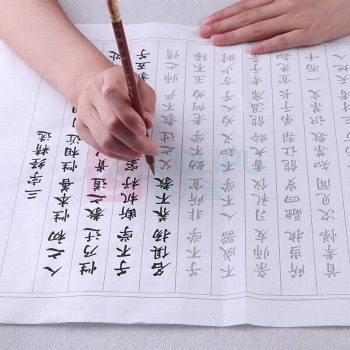 三字经精选
人之初性本善性相近
性乃迁教之道贵
子不学断机杼窦
名俱扬养不教父之过教不严师之惰
子不学非所宜幼不学老何为玉不琢
不成器人不学不知义为人子方少时
亲师友习礼仪香九龄能温席孝于亲
所当执融四岁能让梨弟于长宜先知
首孝悌次见闻知某数识某文一而十